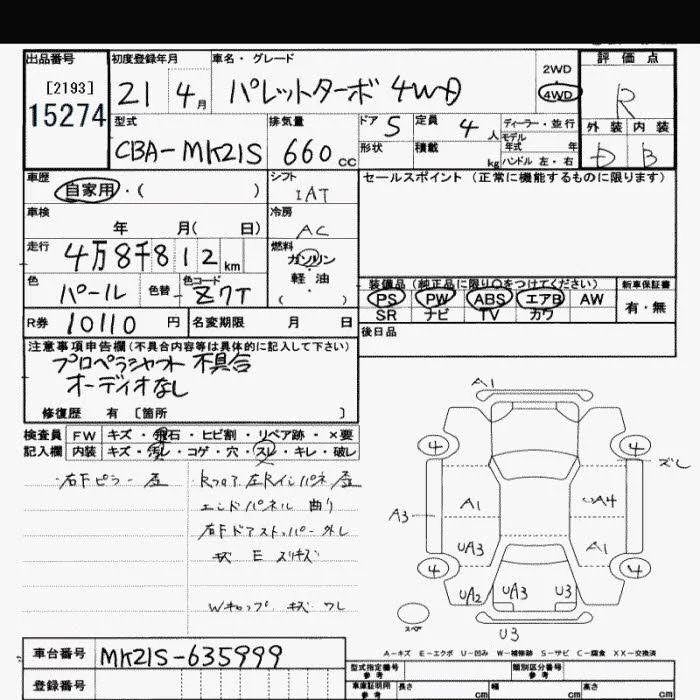 出品番号 初度登録年月 車名・グレード 評価点
[2193]
15274 21 4月 パレットターボ 4WD 2WD 4WD R
型式 排気量 ドア 5 定員 4人 ディーラー・並行 外装 内装
CBA-MK21S 660cc 形状 積載 kg モデル年式 年 ハンドル 左・右 D B
車歴 シフト セールスポイント (正常に機能するものに限ります)
自家用・( ) IAT
車検 冷房
年 月( 日) AC
走行 燃料
4万8千812km ガソリン
軽油
( )
色 色替 色コード 装備品 (純正品に限り○をつけてください) 新車保証書
パール Z7T PS PW ABS エアB AW 有・無
SR ナビ TV カワ
R券 10110円 名変期限 月 日 後日品
注意事項申告欄(不具合内容等は具体的に記入して下さい)
プロペラシャフト 不具合
オーディオなし
修復歴 有 〔箇所 〕
検査員 FW キズ・飛石・ヒビ割・リペア跡・×要
記入欄 内装 キズ・汚レ・コゲ・穴・スレ・キレ・破レ
A1
4 4
ズレ
A3 A1 A4
UA3 A1
4 4
UA2 UA3 U3
スペア
U3
右Fピラー
エンドパネル 曲り
右Fドアストッパー外し
Wキャップ キズ ワレ
A-キズ E-エクボ U-凹み W-補修跡 S-サビ C-腐食 XX-交換済
車台番号 MK21S-635999
登録番号
型式指定番号 参考 類別区分番号 参考
車庫証明用 参考 長さ cm 幅 cm 高さ cm